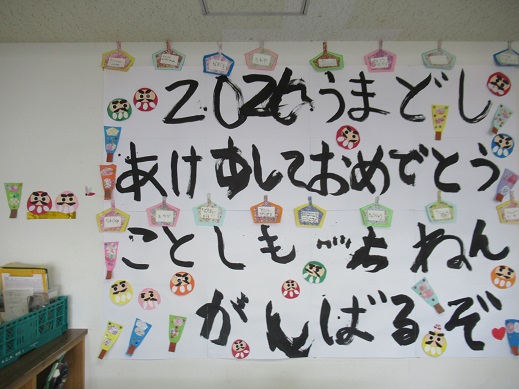 2026うまどし
あけましておめでとう
ことしもいちねん
がんばるぞ